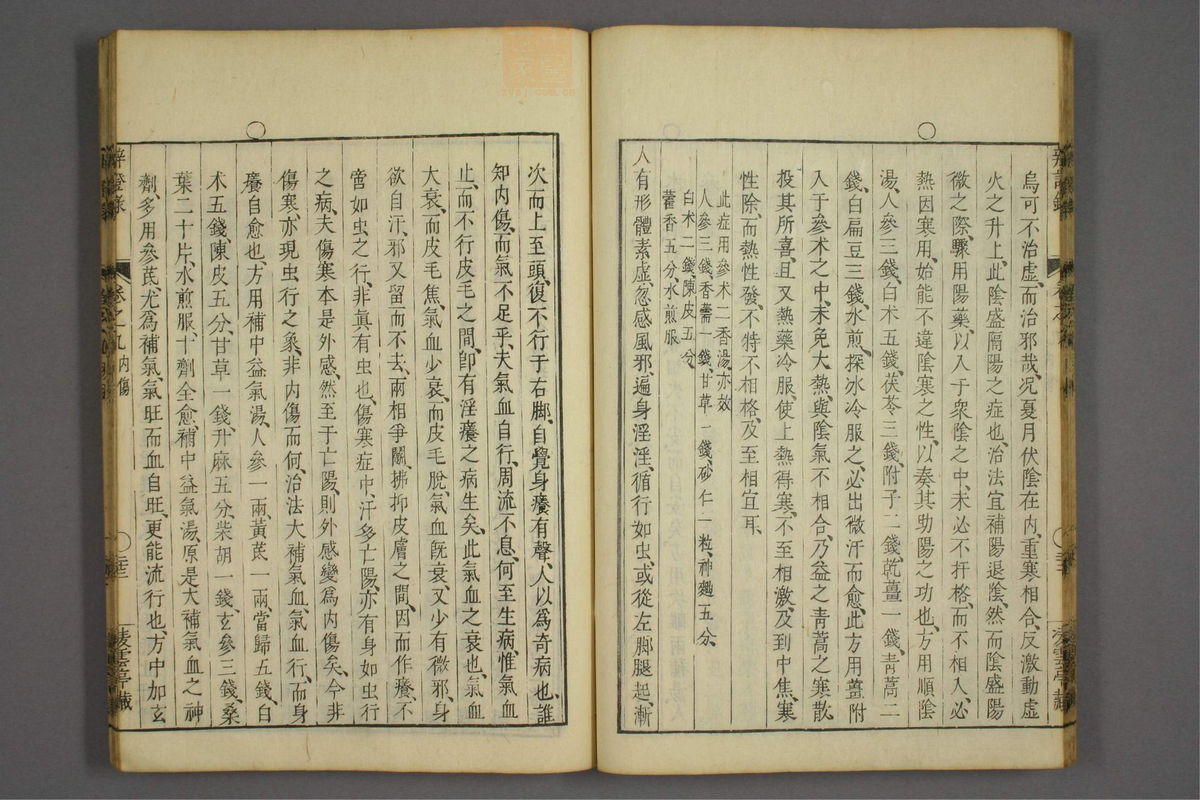 烏可不治虛、而治邪哉、况夏月伏陰在內、重寒相合、反激動虛
火之升上、此陰盛隔陽之症也、治法宜補陽退陰、然而陰盛陽
微之際、驟用陽藥、以入于衆陰之中、未必不扞格、而不相入、必
熱因寒用、始能不違陰寒之性、以奏其助陽之功也、方用順陰
湯、人參三錢、白术五錢、茯苓三錢、附子二錢、乾薑一錢、靑蒿二
錢、白扁豆三錢、水煎、探冰冷服之、必出微汗而愈、此方用薑附
入于參术之中、未免大熱、與陰氣不相合、乃益之靑蒿之寒散、
投其所喜、且又熱藥冷服、使上熱得寒、不至相激、及到中焦、寒
性除、而熱性發、不特不相格、及至相宜耳、
此症用參术二香湯亦效
人參三錢、香薷一錢、甘草一錢、砂仁一粒、神麯五分、
白术二錢、陳皮五分、
藿香五分、水煎服
人有形體素虛、忽感風邪、遍身淫淫、循行如虫、或從左脚腿起、漸
次而上至頭、復下行于右脚、自覺身癢有聲、人以爲奇病也、誰
知內傷、而氣不足乎、夫氣血自行、周流不息、何至生病、惟氣血
止、而不行皮毛之間、卽有淫癢之病生矣、此氣血之衰也、氣血
大衰、而皮毛焦、氣血少衰、而皮毛脫、氣血旣衰、又少有微邪、身
欲自汗、邪又留而不去、兩相爭鬬、拂抑皮膚之間、因而作癢、不
啻如虫之行、非眞有虫也、傷寒症中、汗多亡陽、亦有身如虫行
之病、夫傷寒本是外感、然至于亡陽、則外感變爲內傷矣、今非
傷寒、亦現虫行之象、非內傷而何、治法大補氣血、氣血行、而身
癢自愈也、方用補中益氣湯、人參一兩、黃芪一兩、當歸五錢、白
术五錢、陳皮五分、甘草一錢、升麻五分、柴胡一錢、玄參三錢、桑
葉二十片、水煎服、十劑全愈、補中益氣湯、原是大補氣血之神
劑、多用參芪、尤爲補氣、氣旺而血自旺、更能流行也、方中加玄
辨證錄
卷之九內傷